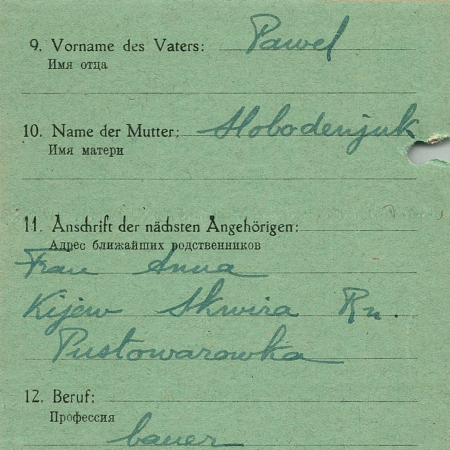 9. Vorname des Vaters: Pawel
Имя отца
10. Name der Mutter: Slobodenjuk
Имя матери
11. Anschrift der nächsten Angehörigen:
Адрес ближайших родственников
Frau Anna
Kijew Skwira Rn.
Pustowarowka
12. Beruf:
Профессия
bauer